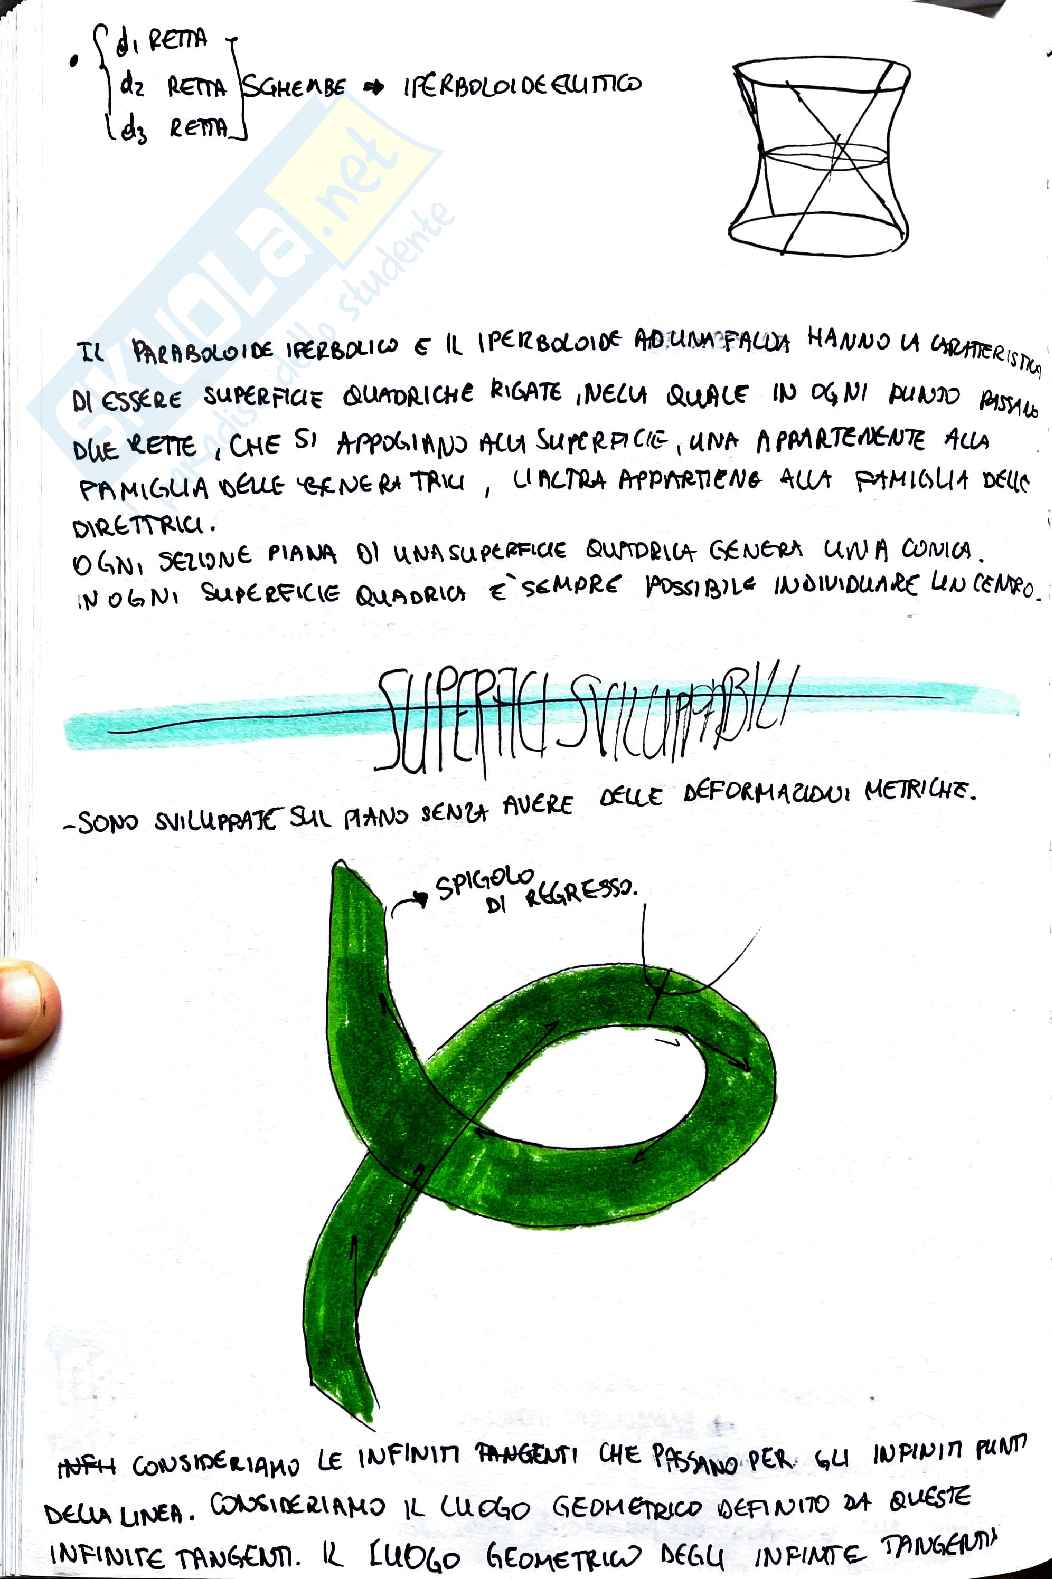 • { d1 RETTA
d2 RETTA SGHEMBE → IPERBOLOIDE ELLITTICO
d3 RETTA
SKUOLA.net
paradiso dello studente
IL PARABOLOIDE IPERBOLICO E IL IPERBOLOIDE AD UNA FALDA HANNO LA CARATTERISTICA
DI ESSERE SUPERFICIE QUADRICHE RIGATE, NELLA QUALE IN OGNI PUNTO PASSANO
DUE RETTE, CHE SI APPOGIANO ALLA SUPERFICIE, UNA APPARTENENTE ALLA
FAMIGLIA DELLE GENERATRICI, L'ALTRA APPARTIENE ALLA FAMIGLIA DELLE
DIRETTRICI.
OGNI SEZIONE PIANA DI UNA SUPERFICIE QUADRICA GENERA UNA CONICA.
IN OGNI SUPERFICIE QUADRICA E' SEMPRE POSSIBILE INDIVIDUARE UN CENTRO.
SUPERFICI SVILUPPABILI
- SONO SVILUPPATE SUL PIANO SENZA AVERE DELLE DEFORMAZIONI METRICHE.
SPIGOLO
DI REGRESSO.
CONSIDERIAMO LE INFINITI TANGENTI CHE PASSANO PER GLI INFINITI PUNTI
DELLA LINEA. CONSIDERIAMO IL LUOGO GEOMETRICO DEFINITO DA QUESTE
INFINITE TANGENTI. IL LUOGO GEOMETRICO DEGLI INFINITE TANGENTI